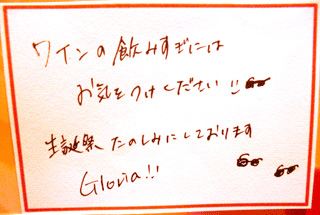 ワインの飲みすぎには
お気をつけください
生誕祭 たのしみにしております
Gloria!!